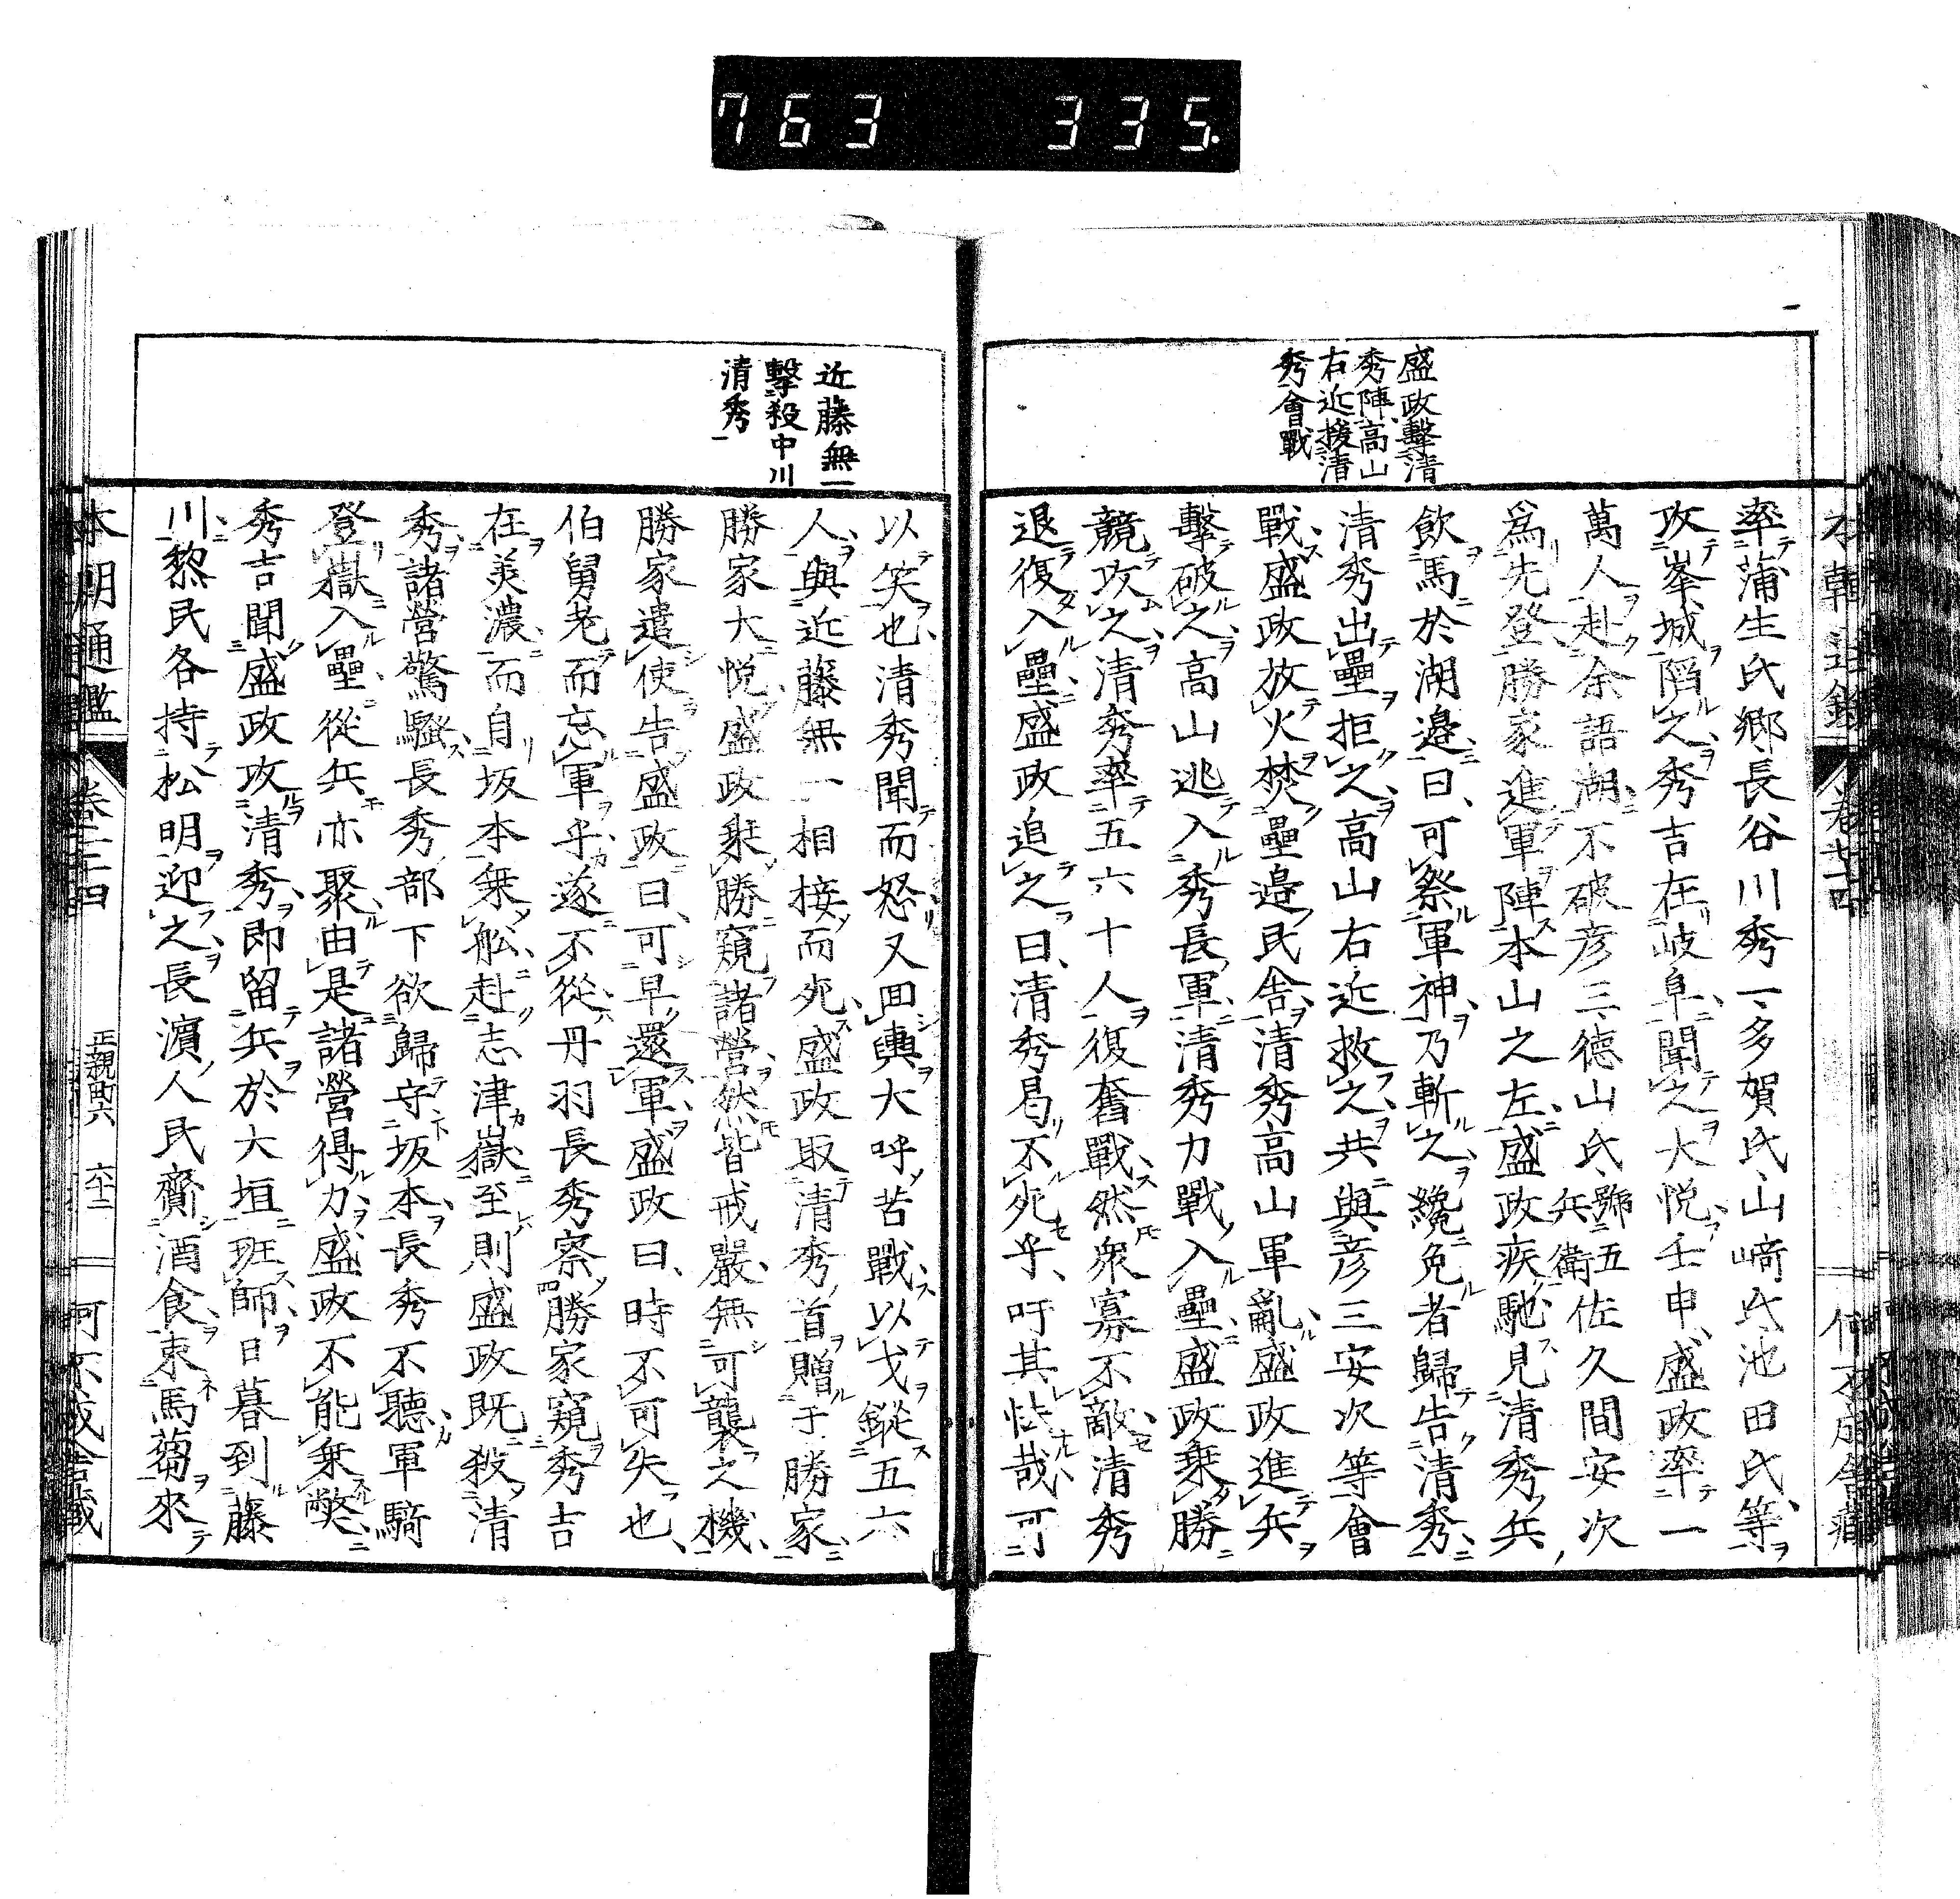 763 335
盛政擊清
秀陣高山
右近援清
秀會戰
率蒲生氏郷長谷川秀一多賀氏山﨑氏池田氏等
攻峯城陷之秀吉在岐阜聞之大悦壬申盛政率一
萬人赴余語湖不破彦三徳山氏號五兵衛佐久間安次
爲先登勝家進軍陣本山之左盛政疾馳見清秀兵
飲馬於湖邉曰可祭軍神乃斬之纔免者歸告清秀
清秀出壘拒之高山右近救之共與彦三安次等會
戰盛政放火焚壘邉民舎清秀高山軍亂盛政進兵
擊破之高山逃入秀長軍清秀力戰入壘盛政乗勝
競攻之清秀率五六十人復奮戰然衆寡不敵清秀
退復入壘盛政追之曰清秀曷不死乎吁其怯哉可
近藤無一
擊殺中川
清秀
以笑也清秀聞而怒又回輿大呼苦戰以戈鏦五六
人與近藤無一相接而死盛政取清秀首贈于勝家
勝家大悦盛政乗勝窺諸營然皆戒嚴無可襲之機
勝家遣使告盛政曰可早還軍盛政曰時不可失也
伯舅老而忘軍乎遂不從丹羽長秀察勝家窺秀吉
在美濃而自坂本乗舩赴志津嶽至則盛政既殺清
秀諸營驚騷長秀部下欲歸守坂本長秀不聽軍騎
登嶽入壘從兵亦聚由是諸營得力盛政不能乗獘
秀吉聞盛政攻清秀即留兵於大垣班師日暮到藤
川黎民各持松明迎之長濵人民齎酒食束馬蒭來
本朝通鑑 卷 正親町六 六十二